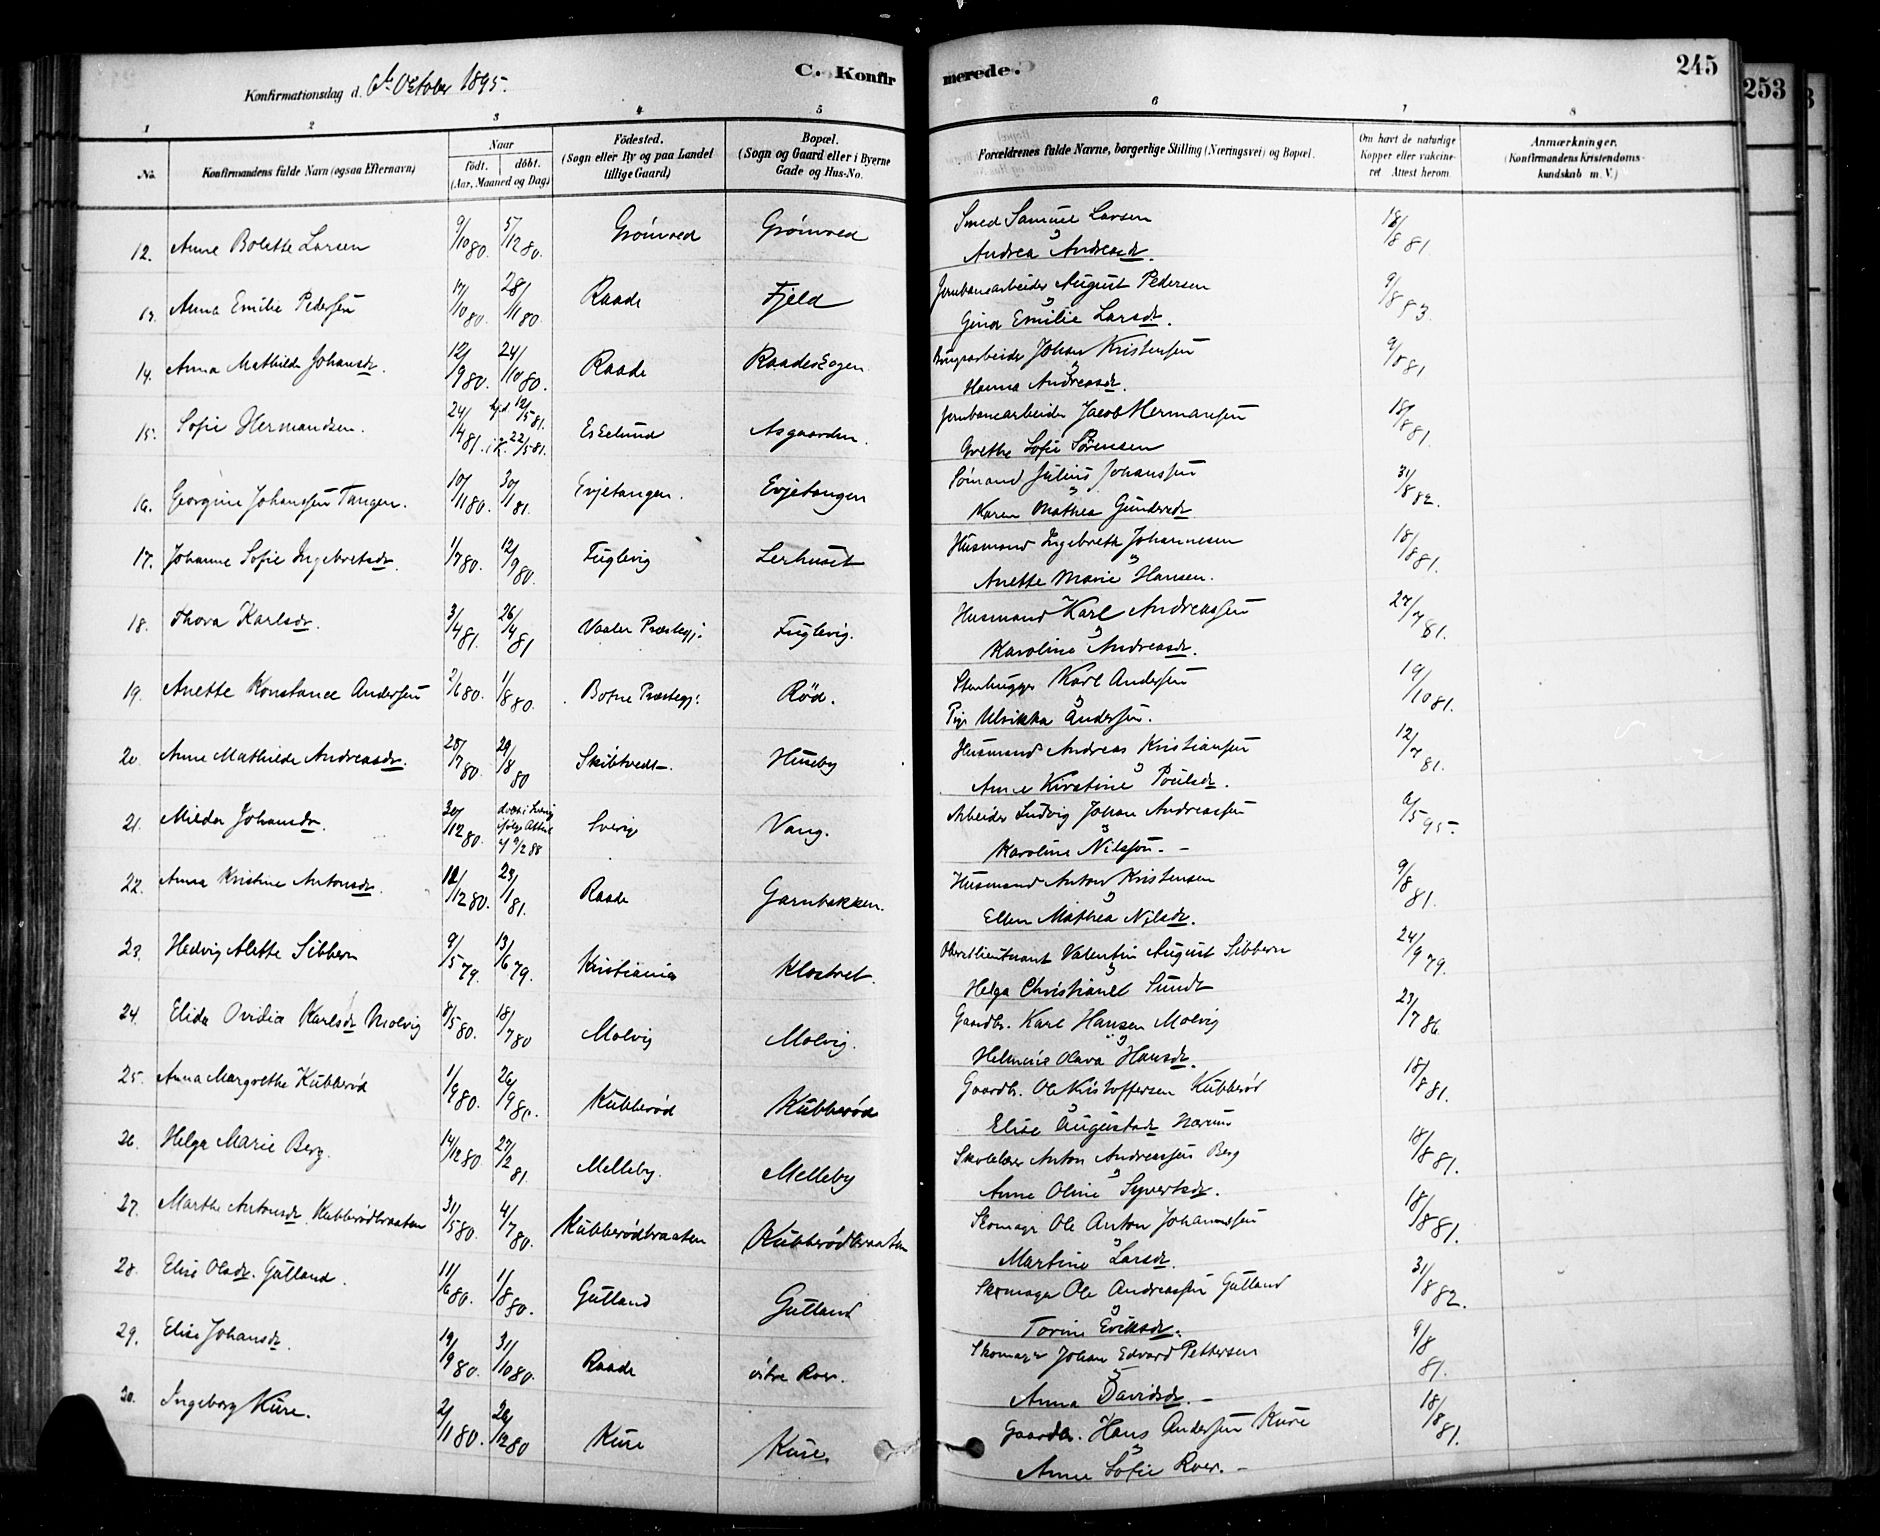 C. Konfirmerede.
245
253
Konfirmationsdag d. 6te October 1895.
1 2 3 4 5 6 7 8
No. Konfirmandens fulde Navn (ogsaa Efternavn) Naar født. døbt. (Aar, Maaned og Dag) Fødested. (Sogn eller By og paa Landet tillige Gaard) Bopæl. (Sogn og Gaard eller i Byerne Gade og Hus-No.) Forældrenes fulde Navne, borgerlige Stilling (Næringsvei) og Bopæl. Om havt de naturlige Kopper eller vakcineret. Attest herom. Anmærkninger. (Konfirmandens Kristendomskundskab m. V.)
12. Anne Bolette Larsen 9/10 80. 5/12 80. Grimsred Grimsred Smed Samuel Larsen 18/8 81.
Andrea Andreasdr.
13. Anna Emilie Pedersen 17/10 80. 28/11 80. Raade Fjeld Jernbanearbeider August Pedersen 9/8 83.
Gina Emilie Larsdr.
14. Anna Mathilde Johansdr. 12/9 80. 24/10 80. Raade Raadeskogen Brugsarbeider Johan Kristensen 9/8 81
Hanna Andreasdr.
15. Sofie Hermandsen. 24/4 81. hjd 12/5 81. i K. 22/5 81. Eskelund Asgaarden. Jernbanearbeider Jacob Hermansen 18/8 81.
Grethe Sofie Sørensen
16. Georgine Johanssen Tangen. 10/11 80. 30/1 81. Evjetangen. Evjetangen Sømand Julius Johanssen 31/8 82.
Karen Mathea Gundersdr
17. Johanne Sofie Ingebretsdr. 1/7 80. 12/9 80. Fuglevig Lerhuset Husmand Ingebreth Johannesen 18/8 81.
Anette Marie Hansen.
18. Thora Karlsdr. 3/4 81. 26/4 81 Vaaler Præstegj: Fuglevig. Husmand Karl Andreassen 27/7 81.
Karoline Andreasdr.
19. Anette Konstance Andersen 2/6 80. 1/8 80. Borne Præstegj: Rød. Stenhugger Karl Andersen 19/10 81.
Pige Ulrikka Andersen.
20. Anne Mathilde Andreasdr. 28/7 80. 29/8 80 Skibtvedt. Huseby Husmand Andreas Kristiansen 12/7 81.
Anne Kirstine Poulsdr.
21. Milda Johansdr. 30/12 80. Sverige Vang. Arbeider Ludvig Johan Andreassen 6/5 95.
Karoline Nilsson. –
22. Anna Kristine Antonsdr. 12/12 80. 23/1 81. Raade Garnbakken. Husmand Anton Kristensen 9/8 81.
Ellen Mathea Nilsdr.
23. Hedvig Alette Sibbern 9/5 79. 13/6 79. Kristiania Klostret. Oberstlieutnant Valentin August Sibbern 24/9 79.
Helga Christiane Sundt
24. Elida Ovidia Karlsdr Molvig 8/5 80. 18/7 80 Molvig Molvig. Gaardbr. Karl Hansen Molvig 23/7 86.
Helmine Olava Hansdr.
25. Anna Margrethe Kubberød 1/9 80. 26/9 80. Kubberød Kubberød Gaardbr. Ole Kristoffersen Kubberød 18/8 81.
Elise Augustadr Narum
26. Helga Marie Berg. 14/12 80. 27/2 81. Melleby. Melleby Skolelærer Anton Andreassen Berg 18/8 81.
Anne Oline Syvertsdr.
27. Marthe Antonsdr. Kubberødbraaten 31/5 80. 4/7 80. Kubberødbraaten Kubberødbraaten Skomager Ole Anton Johannssen 18/8 81.
Martine Larsdr.
28. Elise Olsdr. Gutland. 11/6 80. 1/8 80. Gutland Gutland Skomager Ole Andreassen Gutland 31/8 82.
Torine Eriksdr.
29. Elise Johansdr. 19/9 80. 31/10 80. Raade østre Roer. Skomager Johan Edvard Pettersen 9/8 81.
Anna Davidsdr. –
30. Ingeborg Kure. 2/11 80. 26/12 80 Kure Kure Gaardbr. Hans Andersen Kure 18/8 81.
Anne Sofie Roer. –